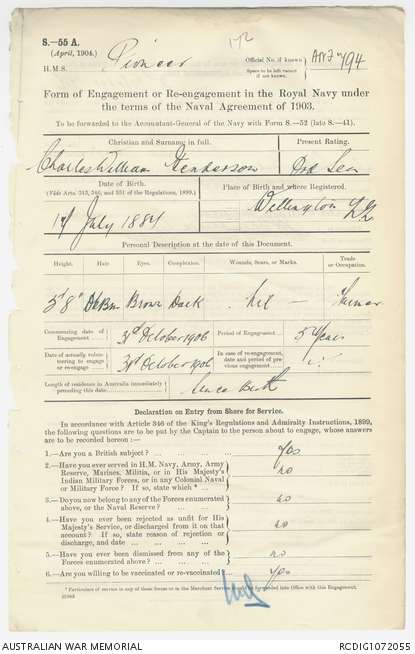 S.—55 A.
(April, 1904.)
H.M.S. Pioneer
Official No. if known
Space to be left vacant if not known.
794
Form of Engagement or Re-engagement in the Royal Navy under
the terms of the Naval Agreement of 1903.
To be forwarded to the Accountant-General of the Navy with Form S.—52 (late S.—41).
Christian and Surname in full. Present Rating.
Charles William Henderson Ord Sea
Date of Birth.
(Vide Arts. 343, 346, and 351 of the Regulations, 1899.)
Place of Birth and where Registered.
14 July 1884 Wellington NZ
Personal Description at the date of this Document.
Height. Hair Eyes. Complexion. Wounds, Scars, or Marks. Trade or Occupation.
5' 8" Dk Bn Brown Dark Nil —
Commencing date of Engagement 31st October 1906 Period of Engagement 5 Years
Date of actually volunteering to engage or re-engage 31st October 1906 In case of re-engagement, date and period of previous engagement
Length of residence in Australia immediately preceding this date Since Birth
Declaration on Entry from Shore for Service.
In accordance with Article 346 of the King's Regulations and Admiralty Instructions, 1899,
the following questions are to be put by the Captain to the person about to engage, whose answers
are to be recorded hereon:—
1.—Are you a British subject? yes
2.—Have you ever served in H.M. Navy, Army, Army
Reserve, Marines, Militia, or in His Majesty's
Indian Military Forces, or in any Colonial Naval
or Military Force? If so, state which * no
3.—Do you now belong to any of the Forces enumerated
above, or the Naval Reserve? no
4.—Have you ever been rejected as unfit for His
Majesty's Service, or discharged from it on that
account? If so, state reason of rejection or
discharge, and date no
5.—Have you ever been dismissed from any of the
Forces enumerated above? no
6.—Are you willing to be vaccinated or re-vaccinated yes
* Particulars of service in any of these forces or in the Merchant Service forwarded into Office with this Engagement.
AUSTRALIAN WAR MEMORIAL
RCDIG1072055